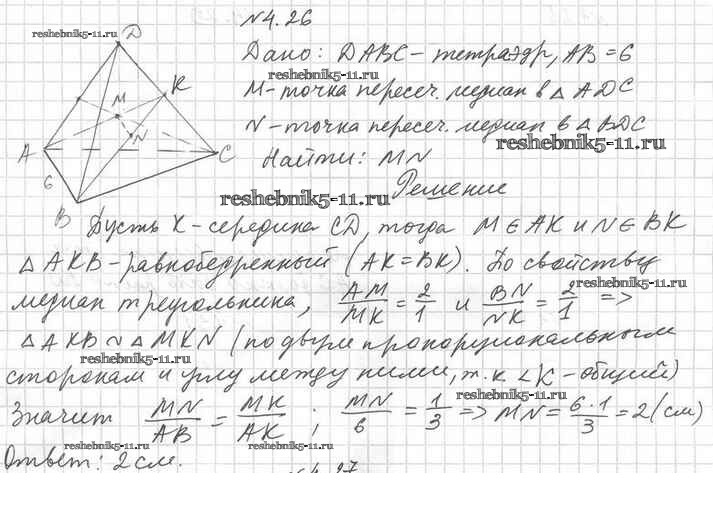 N4.26
Дано: DABC – тетраэдр, AB = 6
M – точка пересеч. медиан в △ ADC
N – точка пересеч. медиан в △ BDC
Найти: MN
Решение
D
K
M
N
A
C
6
B
Пусть K – середина CD, тогда M ∈ AK и N ∈ BK
△ AKB – равнобедренный (AK = BK). По свойству
медиан треугольника, AM/MK = 2/1 и BN/NK = 2/1 =>
△ AKB ~ △ MKN (по двум пропорциональным
сторонам и углу между ними, т.к ∠K – общий)
Значит MN/AB = MK/AK ; MN/6 = 1/3 => MN = 6·1/3 = 2 (см)
Ответ: 2 см.
N4.27
reshebnik5-11.ru
reshebnik5-11.ru
reshebnik5-11.ru
reshebnik5-11.ru
reshebnik5-11.ru
reshebnik5-11.ru
reshebnik5-11.ru
reshebnik5-11.ru
reshebnik5-11.ru